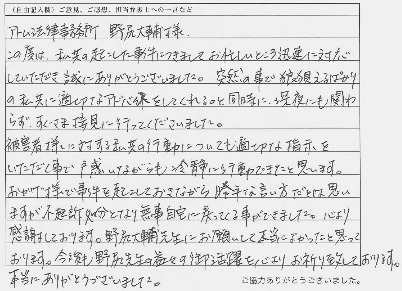 (自由記入欄)ご意見、ご感想、担当弁護士への一言など
アトム法律事務所 野尻大輔様。
この度は、私共の起こした事件につきましてお忙しいところ迅速に対応
していただき誠にありがとうございました。突然の事で狼狽えるばかり
の私共に適切なアドバイスをしてくれると同時に、深夜にも関わ
らず、すぐさま接見に行ってくださいました。
被害者様に対する私共の行動についても適切な指示を
いただく事で戸惑いながらも冷静に行動できたと思います。
おかげ様で事件を起こしておきながら勝手な言い方だとは思い
ますが不起訴処分となり無事自宅に戻ってくる事ができました。心より
感謝しております。野尻大輔先生にお願いして本当によかったと思って
おります。今後の野尻先生の益々の御活躍を心よりお祈り致しております。
本当にありがとうございました。
ご協力ありがとうございました。